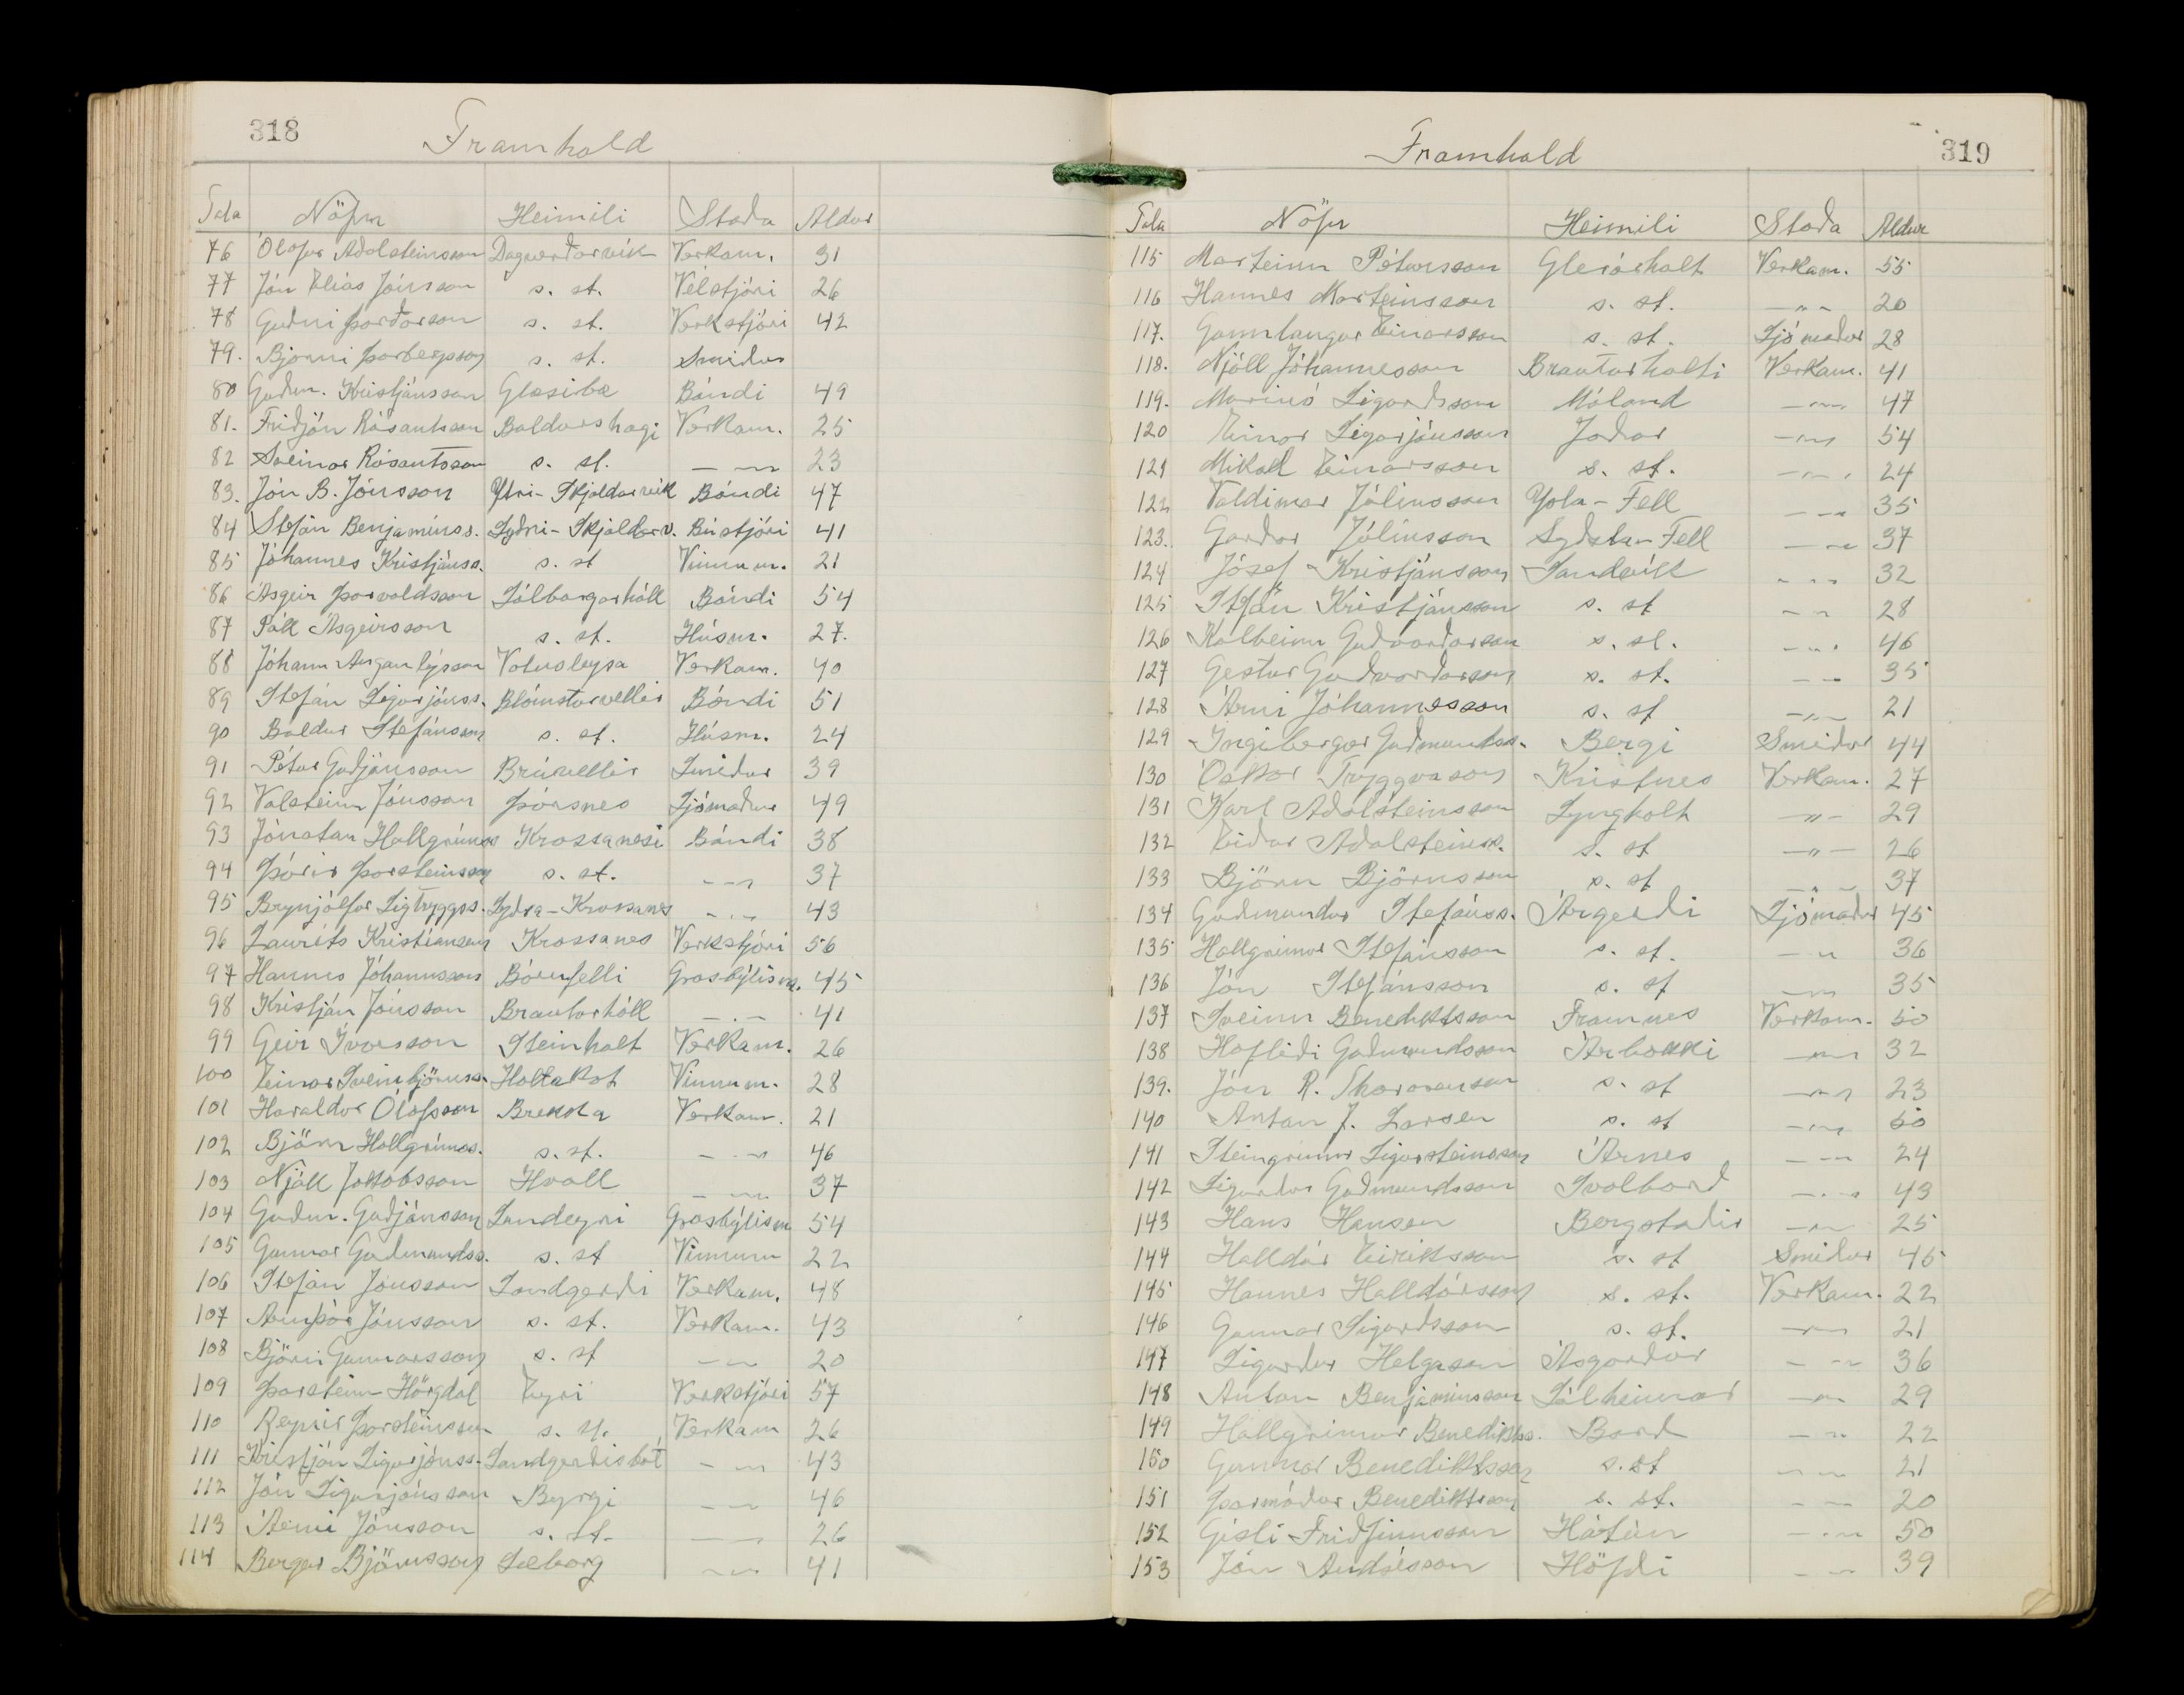 318
Framhald
Tala Nöfn Heimili Staða Aldur
76 Ólafur Aðalsteinsson Dagverðarvík Verkam. 31
77 Jón Elías Jónsson s. st. Vélstjóri 26
78 Guðni Þórðarson s. st. Verkstjóri 42
79. Bjarni Þorbergsson s. st. Smiður
80 Guðm. Kristjánsson Glæsibæ Bóndi 49
81. Friðjón Rósantsson Baldurshagi Verkam. 25
82 Steinar Rósantsson s. st. — „ — 23
83. Jón B. Jónsson Ytri-Skjaldarvík Bóndi 47
84 Stefán Benjamínss. Syðri-Skjaldarv. Bústjóri 41
85 Jóhannes Kristjánss. s. st Vinnum. 21
86 Ásgeir Þorvaldsson Sólborgarhóll Bóndi 54
87 Páll Ásgeirsson s. st. Húsm. 27.
88 Jóhann Angantýsson Vatnsleysa Verkam. 40
89 Stefán Sigurjónss. Blómsturvellir Bóndi 51
90 Baldur Stefánsson s. st. Húsm. 24
91 Pétur Guðjónsson Brúvellir Smiður 39
92 Valsteinn Jónsson Þórsnes Sjómaður 49
93 Jónatan Hallgrímss Krossanesi Bóndi 38
94 Þórir Þorsteinsson s. st. — „ — 37
95 Brynjólfur Sigtryggss. Syðra-Krossanes — „ — 43
96 Laurits Kristiansen Krossanes Verkstjóri 56
97 Hannes Jóhannsson Bárufelli Grasbýlism. 45
98 Kristján Jónsson Brautarhóll — „ — 41
99 Geir Ívarsson Steinholt Verkam. 26
100 Einar Sveinbjörnss. Holtakot Vinnum. 28
101 Haraldur Ólafsson Brekka Verkam. 21
102 Björn Hallgrímss. s. st. — „ — 46
103 Njáll Jakobsson Hvoll — „ — 37
104 Guðm. Guðjónsson Sandeyri Grasbýlism 54
105 Gunnar Guðmundss. s. st Vinnum 22
106 Stefán Jónsson Sandgerði Verkam. 48
107 Arnþór Jónsson s. st. Verkam. 43
108 Björn Gunnarsson s. st — „ — 20
109 Þorsteinn Hörgdal Eyri Verkstjóri 57
110 Reynir Þorsteinsson s. st. Verkam 26
111 Kristján Sigurjónss. Sandgerðisbót — „ — 43
112 Jón Sigurjónsson Byrgi — „ — 46
113 Árni Jónsson s. st. — „ — 26
114 Bergur Björnsson Sæborg — „ — 41
Framhald
319
Tala Nöfn Heimili Staða Aldur
115 Marteinn Pétursson Glerárholt Verkam. 55
116 Hannes Marteinsson s. st. — „ — 20
117. Gunnlaugur Einarsson s. st. Sjómaður 28
118. Njáll Jóhannesson Brautarholti Verkam. 41
119. Marinó Sigurðsson Móland — „ — 47
120 Einar Sigurjónsson Jaðar — „ — 54
121 Mikael Einarsson s. st. — „ — 24
122 Valdimar Júlíusson Ysta-Fell — „ — 35
123. Garðar Júlíusson Syðsta-Fell — „ — 37
124 Jósef Kristjánsson Sandvík — „ — 32
125 Stefán Kristjánsson s. st — „ — 28
126 Kolbeinn Guðvarðarson s. st. — „ — 46
127 Gestur Guðvarðarson s. st. — „ — 35
128 Árni Jóhannesson s. st — „ — 21
129 Ingibergur Guðmundss. Bergi Smiður 44
130 Óskar Tryggvason Kristnes Verkam. 27
131 Karl Aðalsteinsson Lyngholt — „ — 29
132 Eiður Aðalsteinss. s. st — „ — 26
133 Björn Björnsson s. st — „ — 37
134 Guðmundur Stefánss. Árgerði Sjómaður 45
135 Hallgrímur Stefánsson s. st. — „ — 36
136 Jón Stefánsson s. st — „ — 35
137 Sveinn Benediktsson Framnes Verkam. 50
138 Hafliði Guðmundsson Árbakki — „ — 32
139. Jón R. Thorarensen s. st — „ — 23
140 Anton J. Larsen s. st — „ — 50
141 Steingrímur Sigursteinsson Árnes — „ — 24
142 Sigurður Guðmundsson Svalbarð — „ — 43
143 Hans Hansen Bergstaðir — „ — 25
144 Halldór Eiríksson s. st Smiður 45
145 Hannes Halldórsson s. st. Verkam. 22
146 Gunnar Sigurðsson s. st. — „ — 21
147 Sigurður Helgason Ásgarður — „ — 36
148 Anton Benjamínsson Sólheimar — „ — 29
149 Hallgrímur Benediktss. Barð — „ — 22
150 Gunnar Benediktsson s. st — „ — 21
151 Þormóður Benediktsson s. st. — „ — 20
152 Gísli Friðfinnsson Hátún — „ — 50
153 Jón Andrésson Höfði — „ — 39